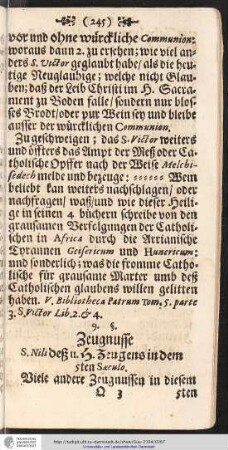 (245)
vor und ohne würckliche Communion:
woraus dann 2. zu ersehen; wie viel an-
ders S. Victor geglaubt habe/ als die heu-
tige Neuglaubige; welche nicht Glau-
ben; daß der Leib Christi im H. Sacra-
ment zu Boden falle/ sondern nur blos-
ses Brodt/ oder pur Wein sey und bleibe
ausser der würcklichen Communion.
Zu geschweigen; das S. Victor weiters
und öffters das Ampt der Meß oder Ca-
tholische Opffer nach der Weise Melchi-
sedech melde und bezeuge: ------ Wem
beliebt kan weiters nachschlagen/ oder
nachfragen/ waß/ und wie dieser Heili-
ge in seinen 4 büchern schreibe von den
grausamen Verfolgungen der Catholi-
schen in Africa durch die Arrianische
Tyrannen Geisericum und Hunericum:
und sonderlich; was die fromme Catho-
lische für grausame Marter umb deß
Catholischen glaubens willen gelitten
haben. V. Bibliotheca Patrum Tom. 5. parte
3. S. Victor Lib. 2. & 4.
9. §.
Zeugnusse
S. Nili deß u. H. Zeugens in dem
5ten Sæculo.
Viele andere Zeugnussen in diesem
Q 3 5ten